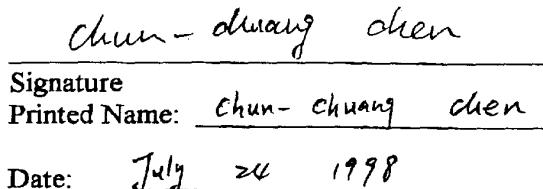 chun-chuang chen
Signature
Printed Name: chun-chuang chen
Date: July 24 1998